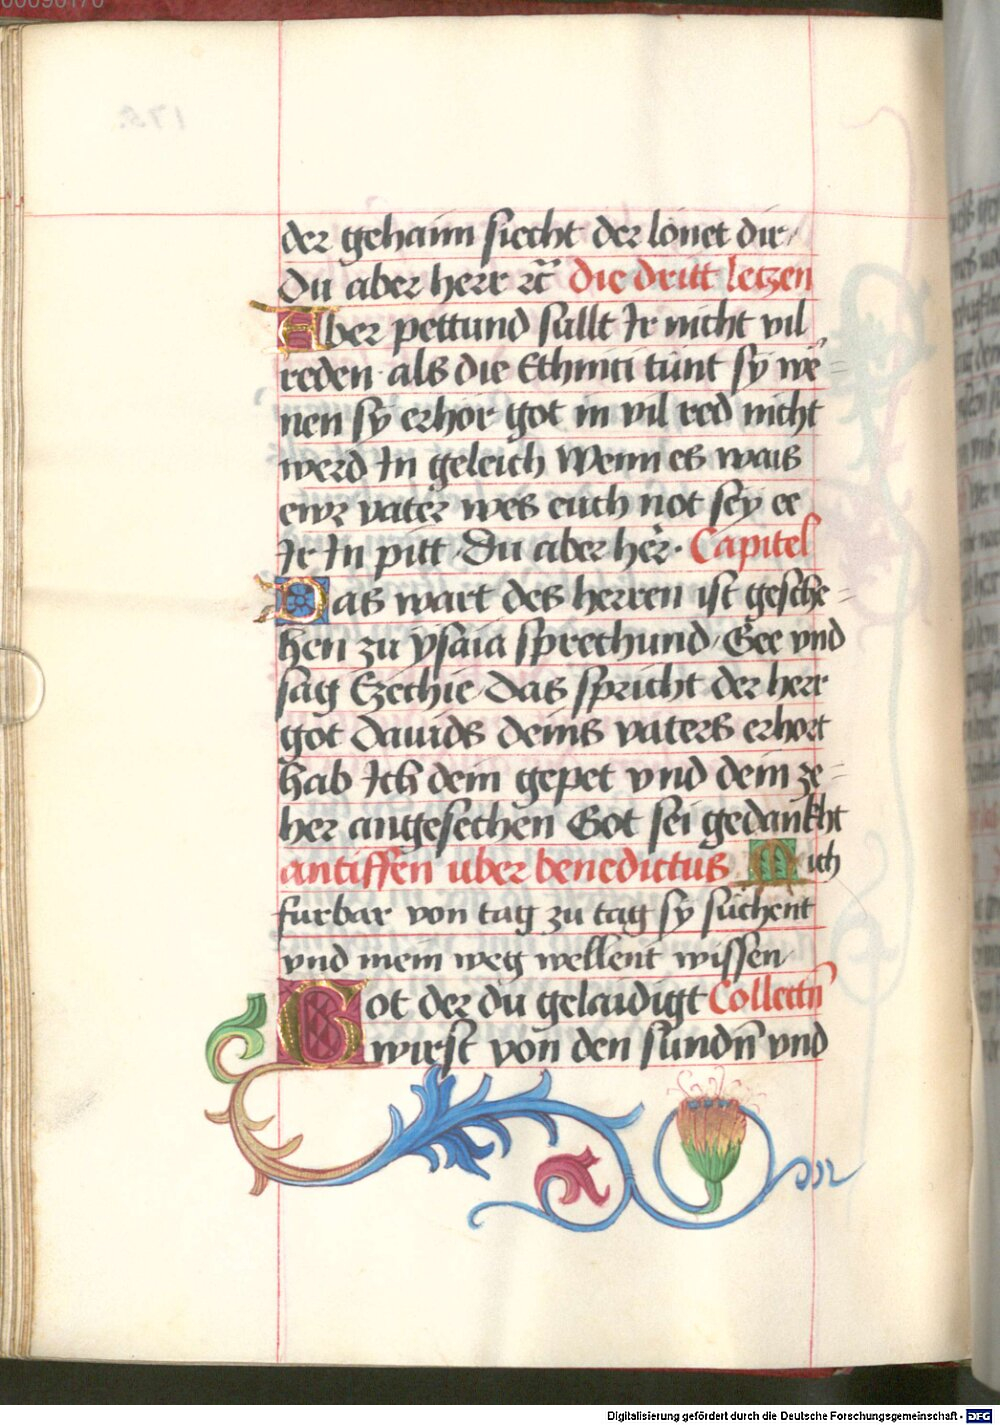 der gehaim siecht der lonet dir /
Du aber herr ꝛc̄ die dritt letzen
Aber pettund sullt Ir nicht vil
reden als die Ethnici tûnt sy wē=
nen sy erhör got in vil red nicht
werd In geleich Wenn es wais
ewr vater wes euch not sey ee
Ir In pitt / Du aber her̄ · Capitel
Das wart des herren ist gesche=
hen zu ysaia sprechund / Gee vnd
sag Ezechie / Das spricht der herr
got Dauids deins vaters erhört
hab Ich dein gepet vnd dein ze=
her angesechen Got sei gedankht
antiffen uber benedictus Mich
furbar von tag zu tag sy sûchent
vnd mein weg wellent wissen /
Got der du gelaidigt Collectn̄
wirst von den sundn̄ vnd
Digitalisierung gefördert durch die Deutsche Forschungsgemeinschaft - DFG